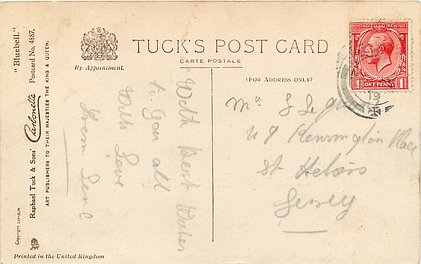 "Bluebell."
Postcard No. 4887.
Carbonette
Raphael Tuck & Sons'
ART PUBLISHERS TO THEIR MAJESTIES THE KING & QUEEN.
Copyright London.
Printed in the United Kingdom
By Appointment.
TUCK'S POST CARD
CARTE POSTALE
(FOR ADDRESS ONLY)
With Best Wishes
to you all
With Love
from
ONE PENNY
Kensington Place
St Heliers
Jersey